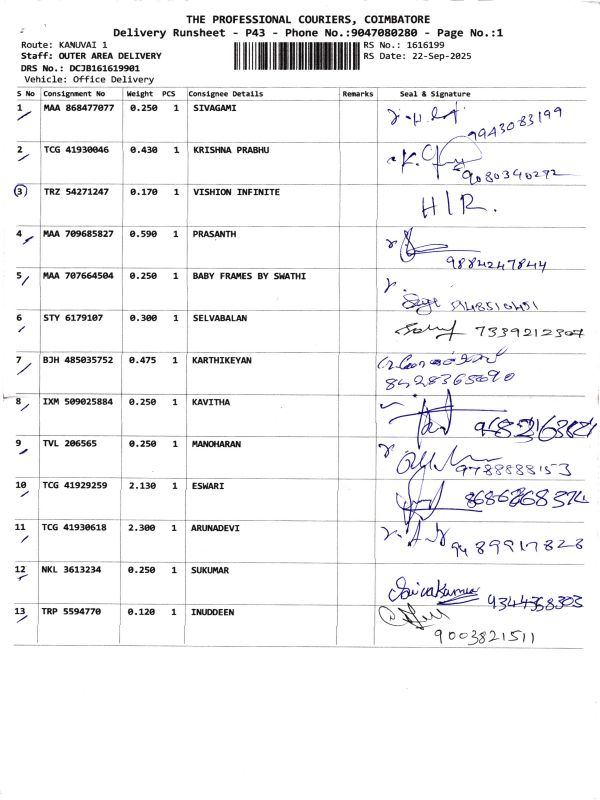 THE PROFESSIONAL COURIERS, COIMBATORE
Delivery Runsheet - P43 - Phone No.:9047080280 - Page No.:1
Route: KANUVAI 1 RS No.: 1616199
Staff: OUTER AREA DELIVERY RS Date: 22-Sep-2025
DRS No.: DCJB161619901
Vehicle: Office Delivery
S No Consignment No Weight PCS Consignee Details Remarks Seal & Signature
1 MAA 868477077 0.250 1 SIVAGAMI
9943083199
2 TCG 41930046 0.430 1 KRISHNA PRABHU
9080340292
3 TRZ 54271247 0.170 1 VISHION INFINITE H/R.
4 MAA 709685827 0.590 1 PRASANTH
9884247844
5 MAA 707664504 0.250 1 BABY FRAMES BY SWATHI
6 STY 6179107 0.300 1 SELVABALAN 7339212307
7 BJH 485035752 0.475 1 KARTHIKEYAN
8428365690
8 IXM 509025884 0.250 1 KAVITHA
9 TVL 206565 0.250 1 MANOHARAN
9788888153
10 TCG 41929259 2.130 1 ESWARI
11 TCG 41930618 2.300 1 ARUNADEVI
9489917828
12 NKL 3613234 0.250 1 SUKUMAR
Sivakumar 9344358303
13 TRP 5594770 0.120 1 INUDDEEN
9003821511